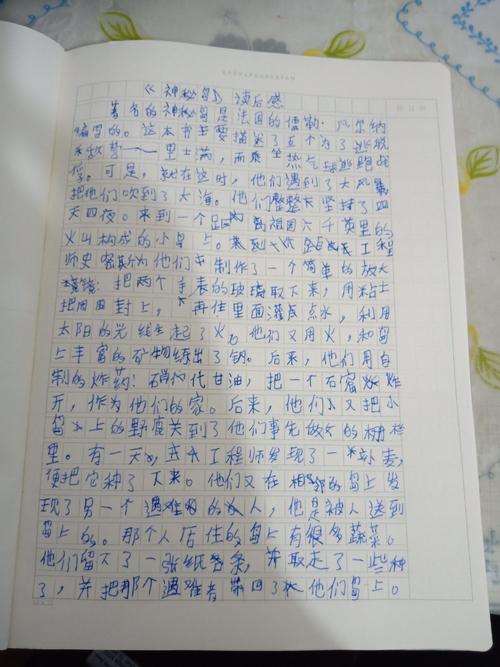 《神秘岛》读后感
著名的神秘岛是法国的儒勒·凡尔纳
编写的。这本书主要描述了五个为了逃脱
敌势——里士满，而乘坐热气球逃跑的
。可是，就在这时，他们遇到了大风暴
把他们吹到了大海。他们整整坚持了四
天四夜。来到一个距 离祖国六千英里的
火山构成的小岛上。来到 工程
师史密斯为他们制作了一个简单的放大
镜：把两个手表的玻璃取下来，用粘土
把四周封上，再往里面灌点水，利用
太阳的光线生起了火，他们又用火，和岛
上丰富的矿物练出了钢。后来，他们用自
制的炸药：硝代甘油，把一个石窟炸
开，作为他们的家。后来，他们又把小
岛上的野鹿关到了他们事先放的树桩
里。有一天，工程师发现了一小麦，
便把它种了下来。他们又在相邻的岛上发
现了另一个遇难的人，他是被人送到
岛上的。那个人居住的岛上有很多蔬菜。
他们留下了一张纸条，并取走了一些种
了，并把那个遇难者带回了他们岛上。